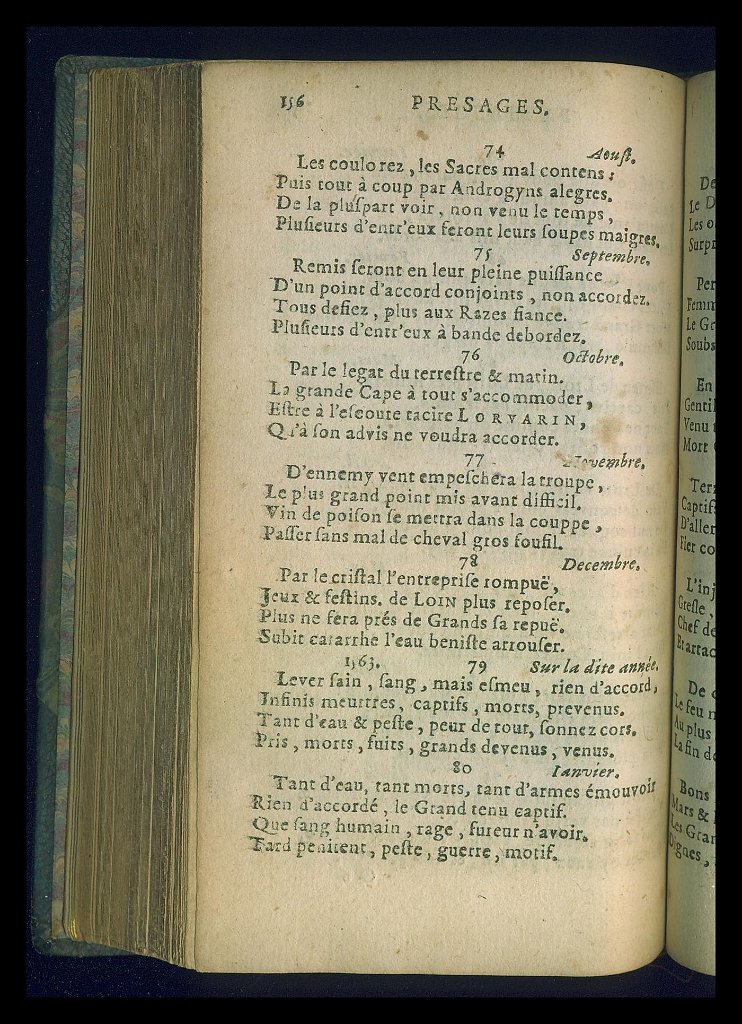 156 PRESAGES.
74 Aouſt.
Les coulorez, les Sacres mal contens:
Puis tout à coup par Androgyns alegres.
De la pluſpart voir, non venu le temps,
Pluſieurs d'entr'eux feront leurs ſoupes maigres.
75 Septembre.
Remis ſeront en leur pleine puiſſance
D'un point d'accord conjoints, non accordez.
Tous defiez, plus aux Razes fiance.
Pluſieurs d'entr'eux à bande debordez.
76 Octobre.
Par le legat du terreſtre & matin.
La grande Cape à tout s'accommoder,
Eſtre à l'eſcoute tacite LORVARIN,
Qu'à ſon advis ne voudra accorder.
77 Novembre.
D'ennemy vent empeſchera la troupe,
Le plus grand point mis avant difficil.
Vin de poiſon ſe mettra dans la couppe,
Paſſer ſans mal de cheval gros fouſil.
78 Decembre.
Par le criſtal l'entrepriſe rompuë,
Jeux & feſtins. de LOIN plus repoſer.
Plus ne fera prés de Grands ſa repuë.
Subit catarrhe l'eau beniſte arrouſer.
1563. 79 Sur la dite année.
Lever ſain, ſang, mais eſmeu, rien d'accord,
Infinis meurtres, captifs, morts, prevenus.
Tant d'eau & peſte, peur de tout, ſonnez cors.
Pris, morts, fuits, grands devenus, venus.
80 Ianvier.
Tant d'eau, tant morts, tant d'armes émouvoir
Rien d'accordé, le Grand tenu captif.
Que ſang humain, rage, fureur n'avoir.
Tard penitent, peſte, guerre, motif.
De
Le D
Les o
Surpr
Per
Femm
Le Gr
Soubs
En
Gentil
Venu t
Mort
Terr
Captifs
D'aller
Fier co
L'inj
Greſle,
Chef de
Et attac
De
Le feu n
Au plus
La fin de
Bons
Mars &
Les Gran
Dignes,